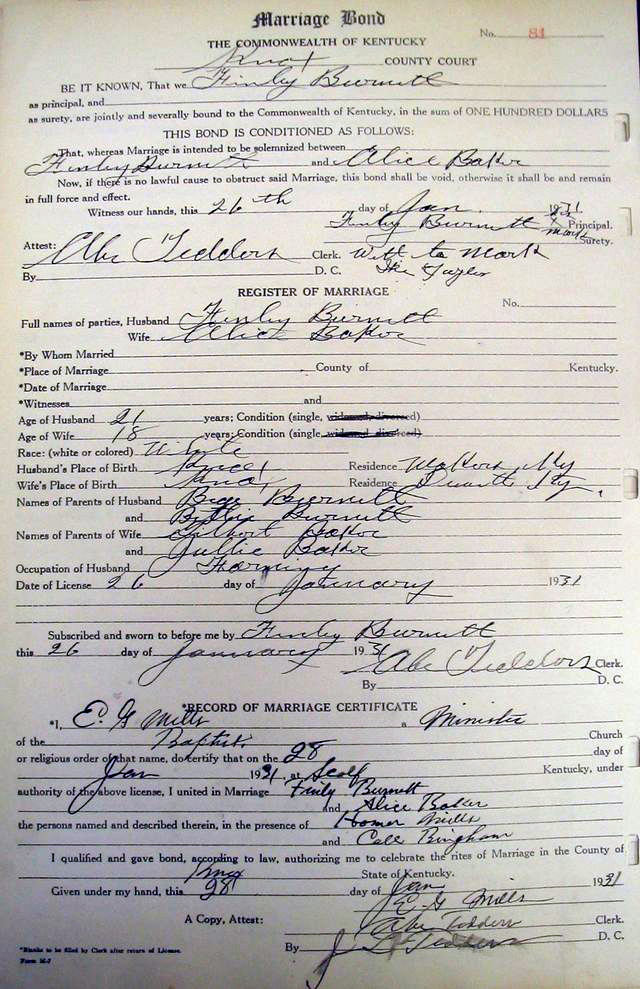 Marriage Bond
No. 81
THE COMMONWEALTH OF KENTUCKY
Knox COUNTY COURT
BE IT KNOWN, That we Finly Burnett
as principal, and
as surety, are jointly and severally bound to the Commonwealth of Kentucky, in the sum of ONE HUNDRED DOLLARS
THIS BOND IS CONDITIONED AS FOLLOWS:
That, whereas Marriage is intended to be solemnized between
Finly Burnett and Alice Baker
Now, if there is no lawful cause to obstruct said Marriage, this bond shall be void, otherwise it shall be and remain
in full force and effect.
Witness our hands, this 26th day of Jan. 1931
Finly Burnett his x mark Principal.
Surety.
Attest: Abe Tedders Clerk. Witt to Mark
By D. C.
REGISTER OF MARRIAGE
No.
Full names of parties, Husband Finly Burnett
Wife Allice Baker
*By Whom Married
*Place of Marriage County of Kentucky.
*Date of Marriage
*Witnesses and
Age of Husband 21 years; Condition (single, widowed, divorced)
Age of Wife 18 years; Condition (single, widowed, divorced)
Race: (white or colored) White
Husband's Place of Birth Knox Residence Ky
Wife's Place of Birth Knox Residence Ky,
Names of Parents of Husband Burnett
and Burnett
Names of Parents of Wife Gilbert Baker
and Baker
Occupation of Husband Farming
Date of License 26 day of January 1931
Subscribed and sworn to before me by Finly Burnett
this 26 day of January 1931 Abe Tedders Clerk.
By D. C.
*RECORD OF MARRIAGE CERTIFICATE
*I, E. G Mills a Minister
of the Baptist Church
or religious order of that name, do certify that on the 28 day of
Jan 1931, at Scalf Kentucky, under
authority of the above license, I united in Marriage Finly Burnett
and Alice Baker
the persons named and described therein, in the presence of Homer Mills
and Cale Bingham
I qualified and gave bond, according to law, authorizing me to celebrate the rites of Marriage in the County of
Knox State of Kentucky.
Given under my hand, this 28 day of Jan 1931
E. G Mills
A Copy, Attest: Abe Tedders Clerk.
By J L Tedders D. C.
*Blanks to be filled by Clerk after return of License.